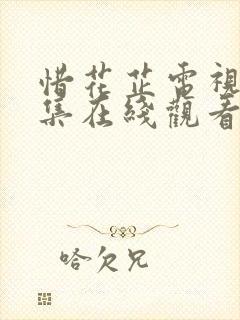 惜花芷電視
集在綫觀看
哈欠兄